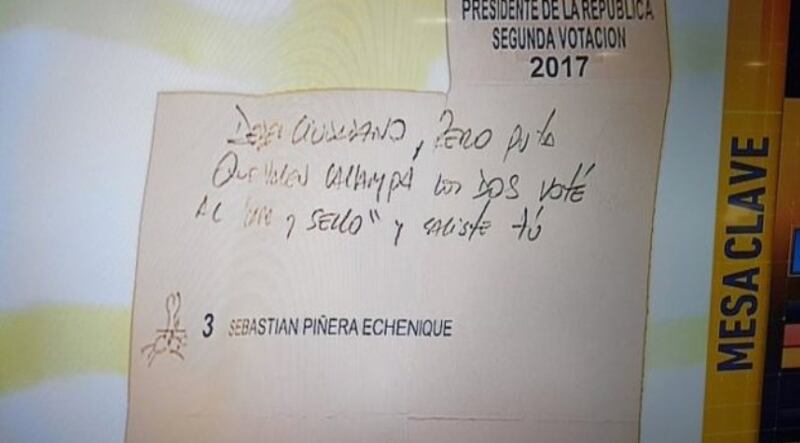 PRESIDENTE DE LA REPUBLICA
SEGUNDA VOTACION
2017
DEBER CIUDADANO, PERO PUTA
QUE VALEN CALLAMPA LOS DOS VOTÉ
AL "CARA y SELLO" y SALISTE TÚ
3 SEBASTIAN PIÑERA ECHENIQUE
MESA CLAVE